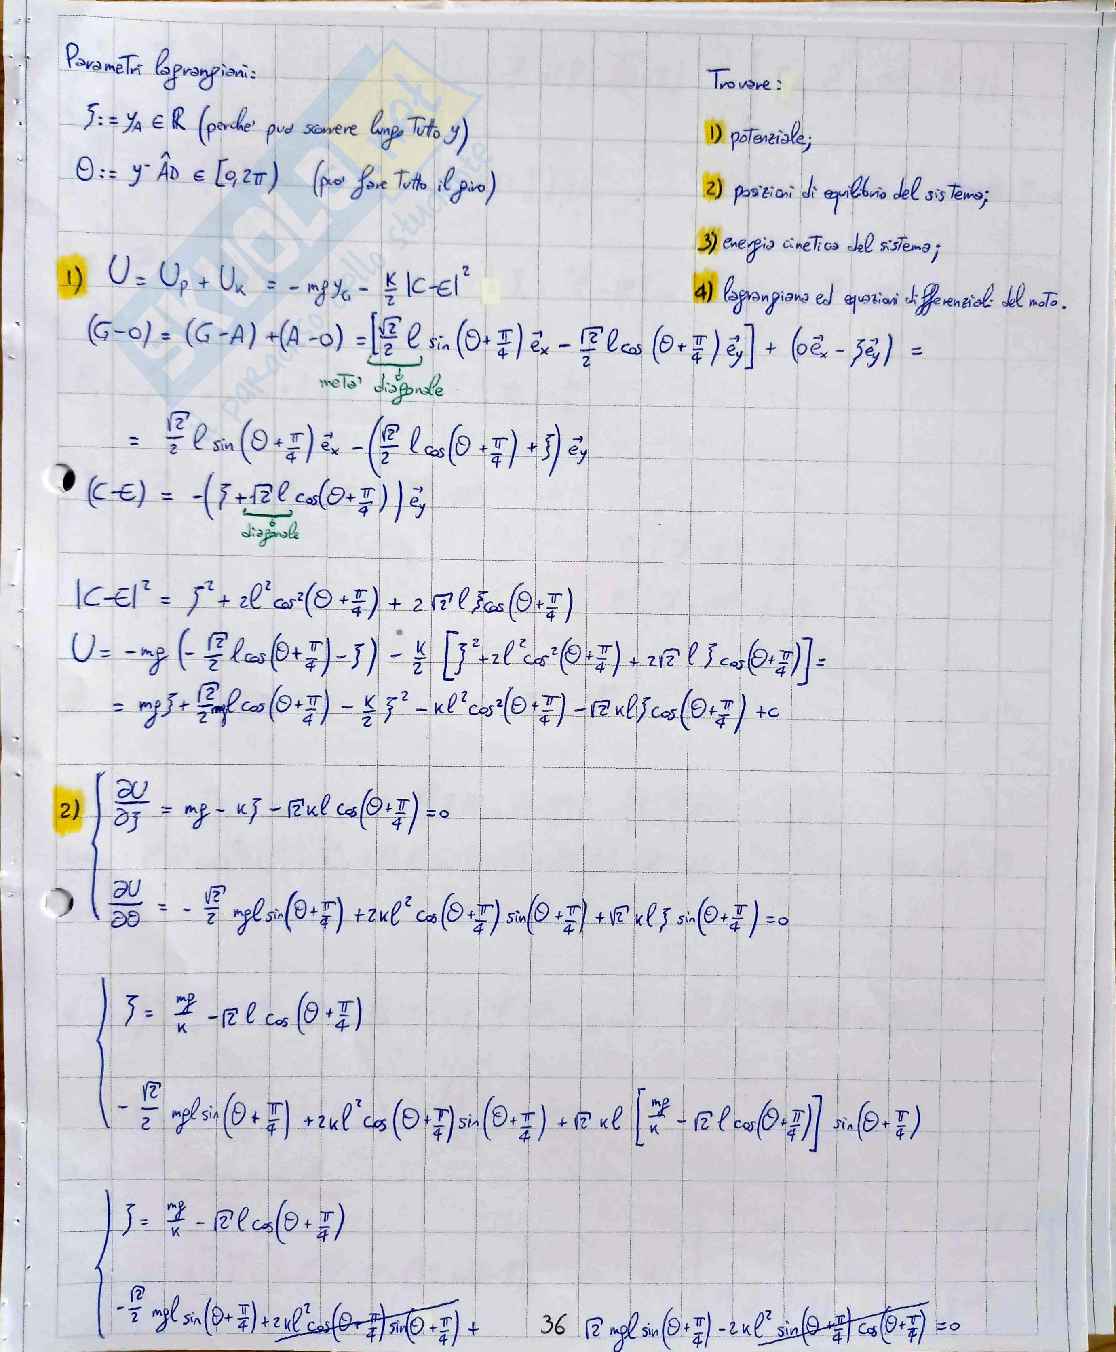 Parametri lagrangiani:
ξ := y_A ∈ ℝ (perché può scorrere lungo tutto y)
θ := y⁻ÂD ∈ [0,2π) (può fare tutto il giro)
Trovare:
1) potenziale;
2) posizioni di equilibrio del sistema;
3) energia cinetica del sistema;
4) lagrangiana ed equazioni differenziali del moto.
1) U = U_P + U_K = -mgy_G - K/2 |C-E|²
(G-O) = (G-A) + (A-O) = [√2/2 l sin(θ+π/4) e⃗_x - √2/2 l cos(θ+π/4) e⃗_y] + (0e⃗_x - ξe⃗_y) =
metà diagonale
= √2/2 l sin(θ+π/4) e⃗_x - (√2/2 l cos(θ+π/4) + ξ) e⃗_y
(C-E) = -(ξ+√2 l cos(θ+π/4)) e⃗_y
diagonale
|C-E|² = ξ² + 2l² cos²(θ+π/4) + 2√2 l ξ cos(θ+π/4)
U = -mg (-√2/2 l cos(θ+π/4) - ξ) - K/2 [ξ² + 2l² cos²(θ+π/4) + 2√2 l ξ cos(θ+π/4)] =
= mgξ + √2/2 mgl cos(θ+π/4) - K/2 ξ² - Kl² cos²(θ+π/4) - √2 Klξ cos(θ+π/4) + c
2) { ∂U/∂ξ = mg - Kξ - √2 Kl cos(θ+π/4) = 0
∂U/∂θ = -√2/2 mgl sin(θ+π/4) + 2Kl² cos(θ+π/4) sin(θ+π/4) + √2 Klξ sin(θ+π/4) = 0
{ ξ = mg/K - √2 l cos(θ+π/4)
-√2/2 mgl sin(θ+π/4) + 2Kl² cos(θ+π/4) sin(θ+π/4) + √2 Kl [mg/K - √2 l cos(θ+π/4)] sin(θ+π/4)
{ ξ = mg/K - √2 l cos(θ+π/4)
-√2/2 mgl sin(θ+π/4) + 2Kl² cos(θ+π/4) sin(θ+π/4) + √2 mgl sin(θ+π/4) - 2Kl² sin(θ+π/4) cos(θ+π/4) = 0
36